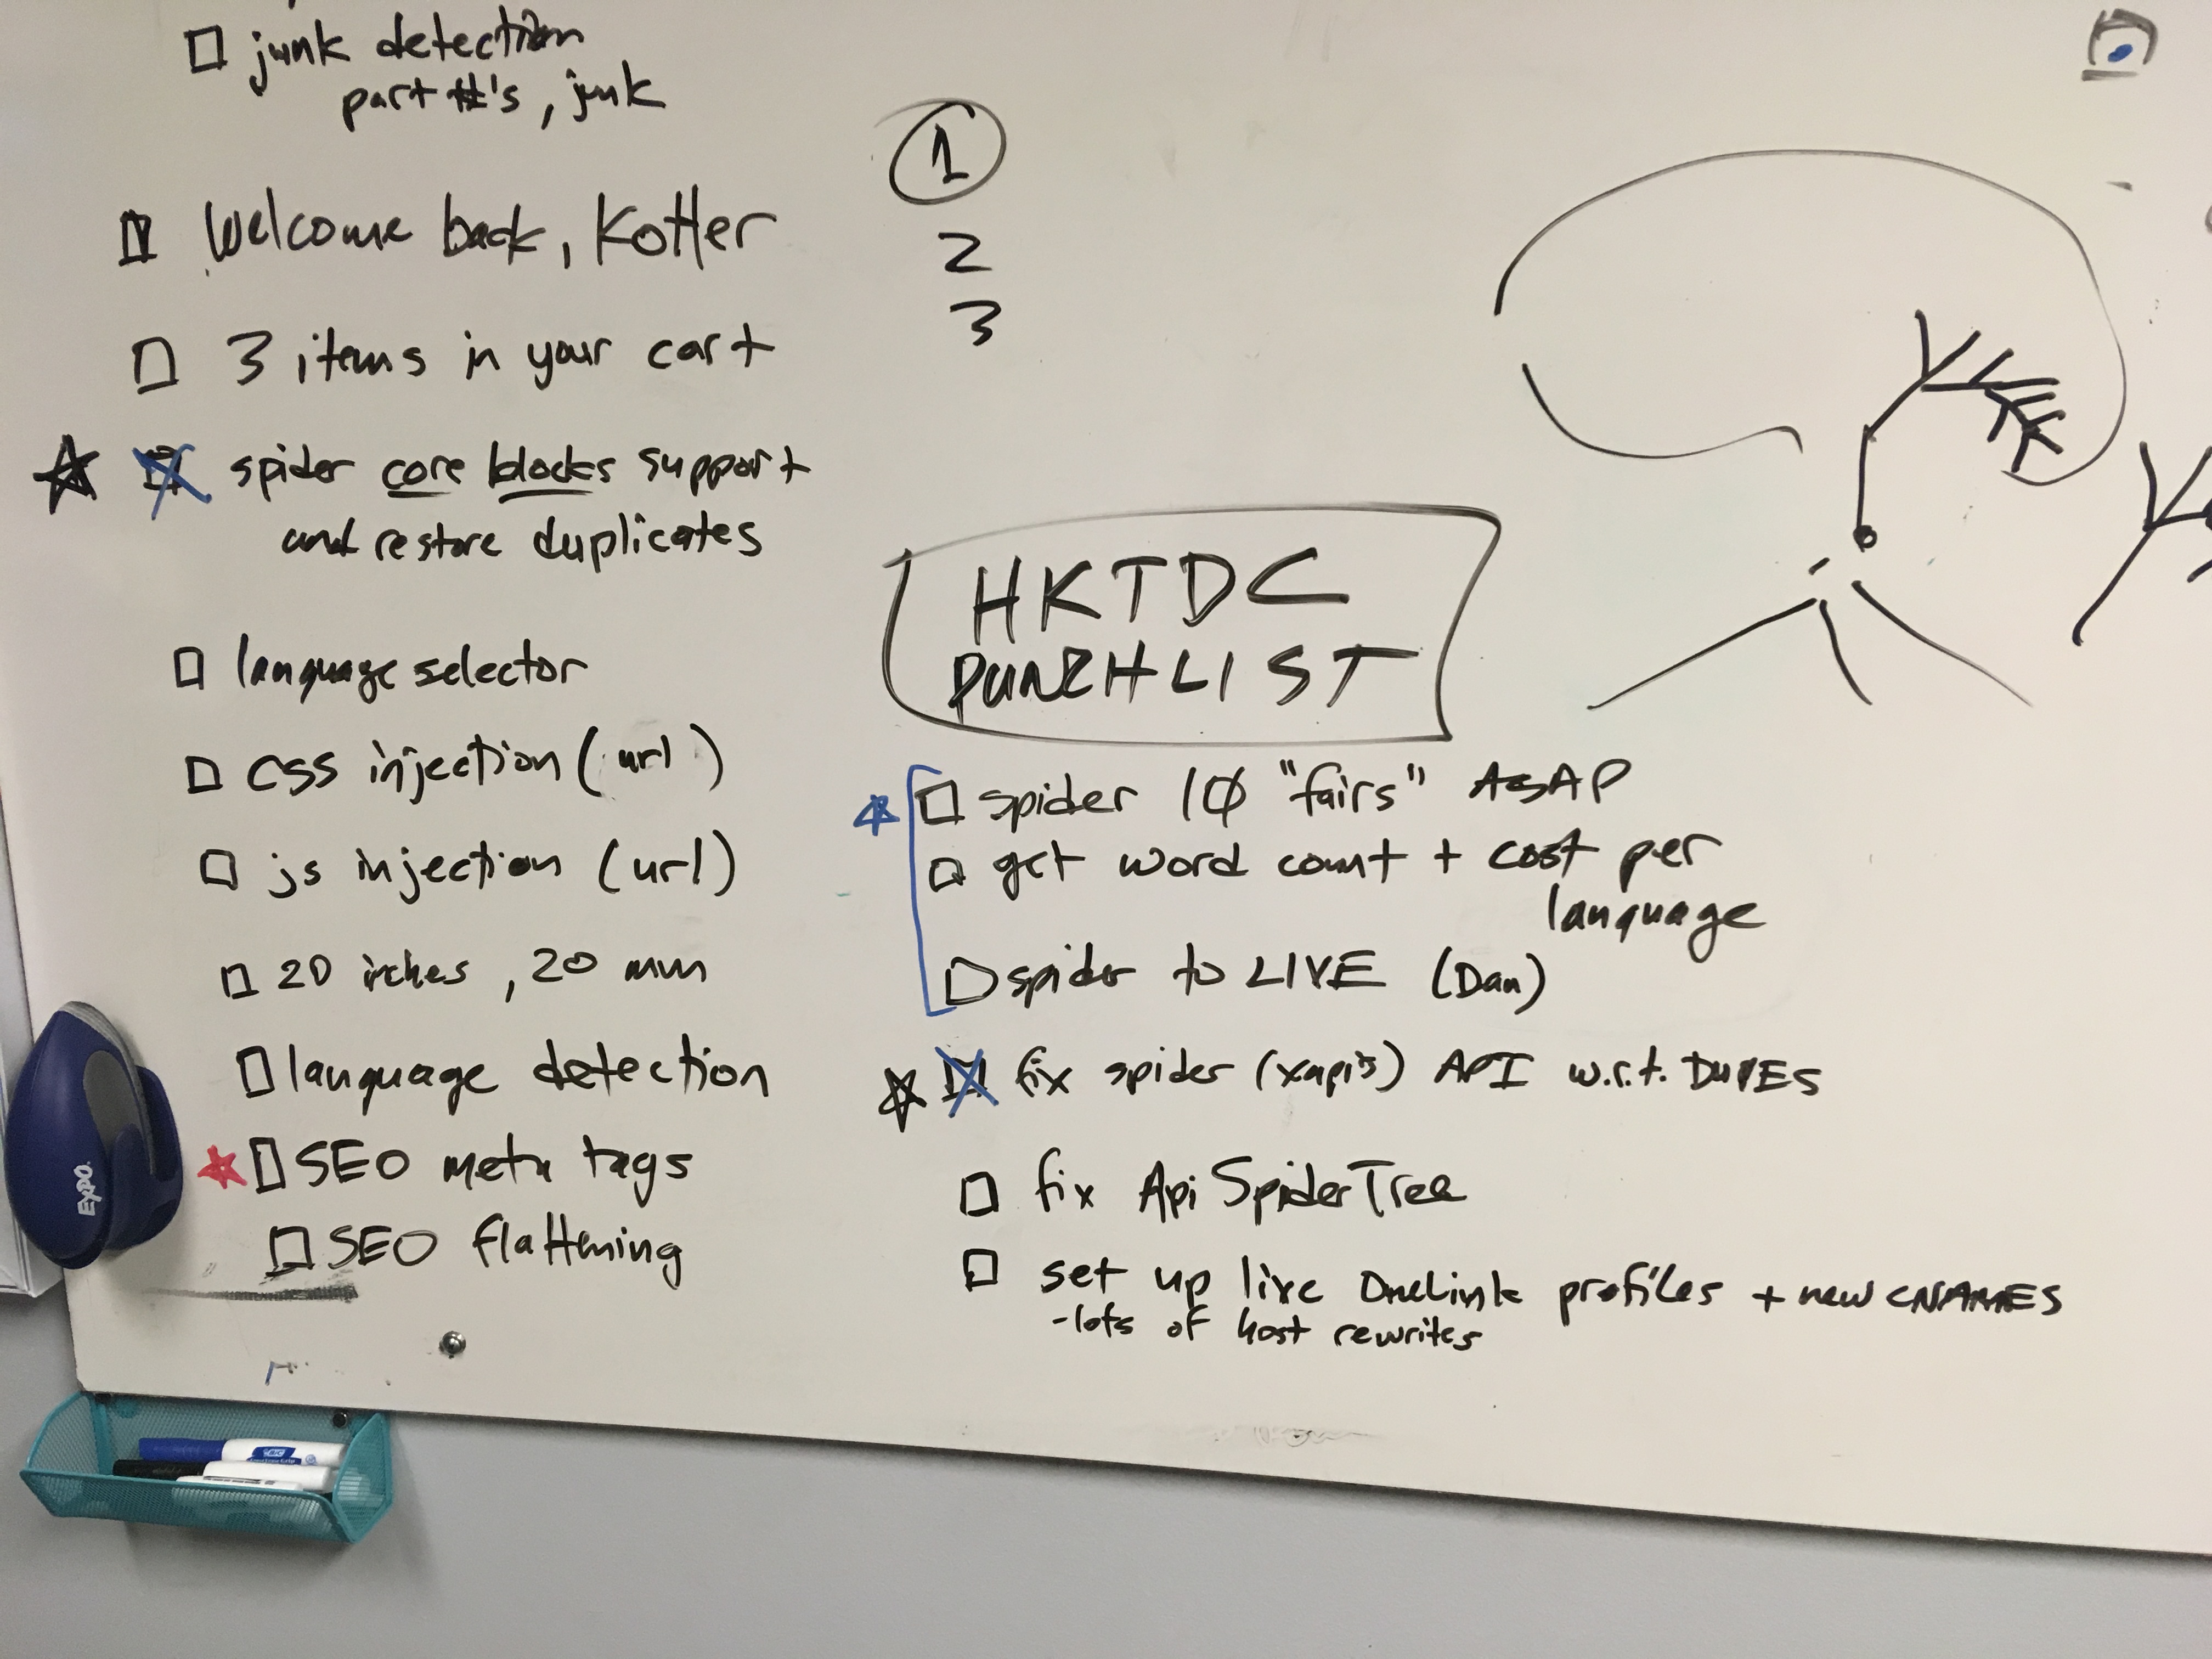 junk detection
part #'s, junk
Welcome back, Kotter
3 items in your cart
spider core blocks support
and restore duplicates
language selector
css injection (url)
js injection (url)
20 inches, 20 mm
language detection
SEO meta tags
SEO flattening
1
2
3
HKTDC
PUNCHLIST
spider 10 "fairs" ASAP
get word count + cost per
language
spider to LIVE (Dan)
fix spider (xapis) API w.r.t. DUPES
fix Api SpiderTree
set up live OneLink profiles + new CNAMES
-lots of host rewrites
EXPO
BIC